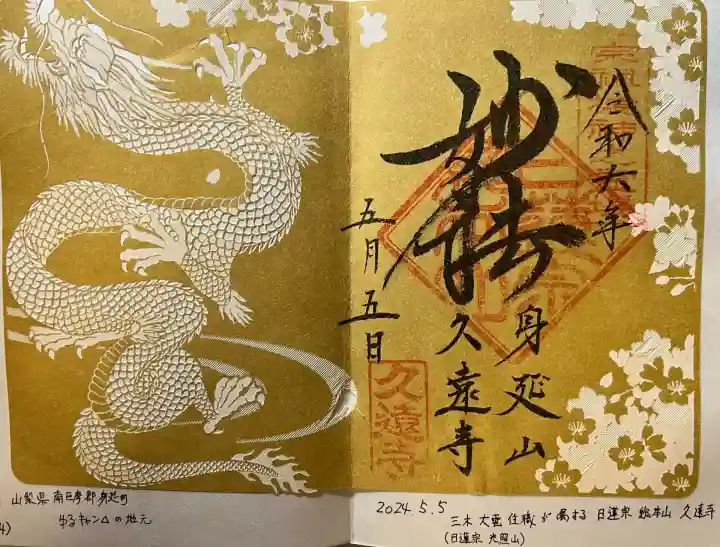 令和六年
妙法
身延山
久遠寺
五月五日
久遠寺
山梨県 南巨摩郡 身延町
ゆるキャン△の地元
4)
2024.5.5
三木 大雲 住職が属する 日蓮宗 総本山 久遠寺
(日蓮宗 光照山)